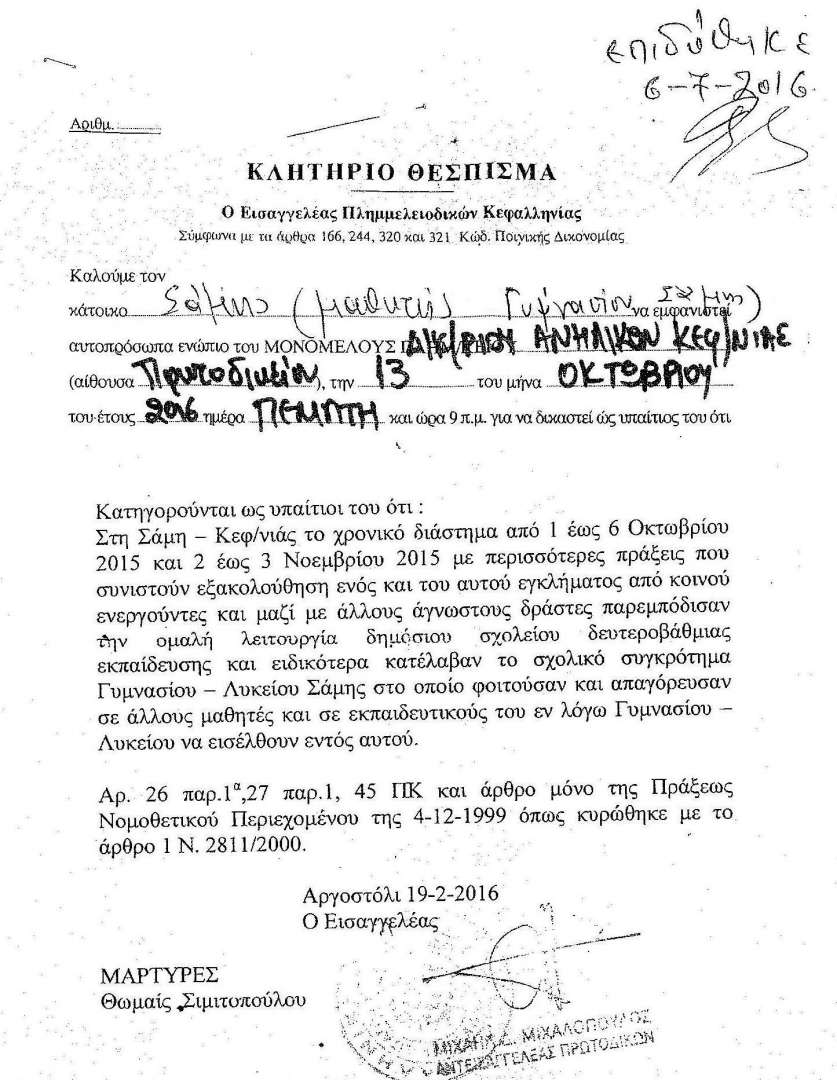 επιδόθηκε
6-7-2016
Αριθμ.
ΚΛΗΤΗΡΙΟ ΘΕΣΠΙΣΜΑ
Ο Εισαγγελέας Πλημμελειοδικών Κεφαλληνίας
Σύμφωνα με τα άρθρα 166, 244, 320 και 321 Κώδ. Ποινικής Δικονομίας
Καλούμε τον
κάτοικο Σάμης (μαθητής Γυμνασίου Σάμης) να εμφανιστεί
αυτοπρόσωπα ενώπιο του ΜΟΝΟΜΕΛΟΥΣ ΔΙΚ/ΡΙΟΥ ΑΝΗΛΙΚΩΝ ΚΕΦ/ΝΙΑΣ
(αίθουσα Πρωτοδικείου), την 13 του μήνα ΟΚΤΩΒΡΙΟΥ
του έτους 2016 ημέρα ΠΕΜΠΤΗ και ώρα 9 π.μ. για να δικαστεί ώς υπαίτιος του ότι
Κατηγορούνται ως υπαίτιοι του ότι :
Στη Σάμη – Κεφ/νιάς το χρονικό διάστημα από 1 έως 6 Οκτωβρίου
2015 και 2 έως 3 Νοεμβρίου 2015 με περισσότερες πράξεις που
συνιστούν εξακολούθηση ενός και του αυτού εγκλήματος από κοινού
ενεργούντες και μαζί με άλλους άγνωστους δράστες παρεμπόδισαν
την ομαλή λειτουργία δημόσιου σχολείου δευτεροβάθμιας
εκπαίδευσης και ειδικότερα κατέλαβαν το σχολικό συγκρότημα
Γυμνασίου – Λυκείου Σάμης στο οποίο φοιτούσαν και απαγόρευσαν
σε άλλους μαθητές και σε εκπαιδευτικούς του εν λόγω Γυμνασίου –
Λυκείου να εισέλθουν εντός αυτού.
Αρ. 26 παρ.1α,27 παρ.1, 45 ΠΚ και άρθρο μόνο της Πράξεως
Νομοθετικού Περιεχομένου της 4-12-1999 όπως κυρώθηκε με το
άρθρο 1 Ν. 2811/2000.
Αργοστόλι 19-2-2016
Ο Εισαγγελέας
ΜΑΡΤΥΡΕΣ
Θωμαίς Σιμιτοπούλου
ΜΙΧΑΛΟΠΟΥΛΟΣ
ΑΝΤΕΙΣΑΓΓΕΛΕΑΣ ΠΡΩΤΟΔΙΚΩΝ